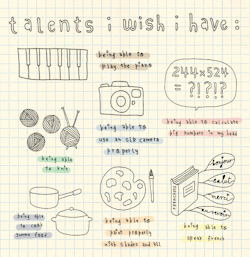 talents i wish i have:
being able to
play the piano
244x524
= ?!?!?
being able to
use an SLR camera
properly
being able to calculate
big numbers in my head
being able
to knit
bonjour
salut
merci
FRANCAIS
being able
to cook
yummy food
being able to
paint properly
with shades and all
being able to
speak french